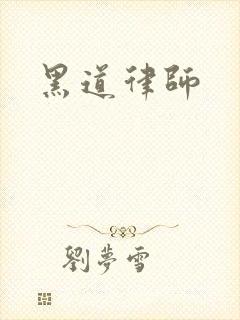 黑道律師
劉夢雪